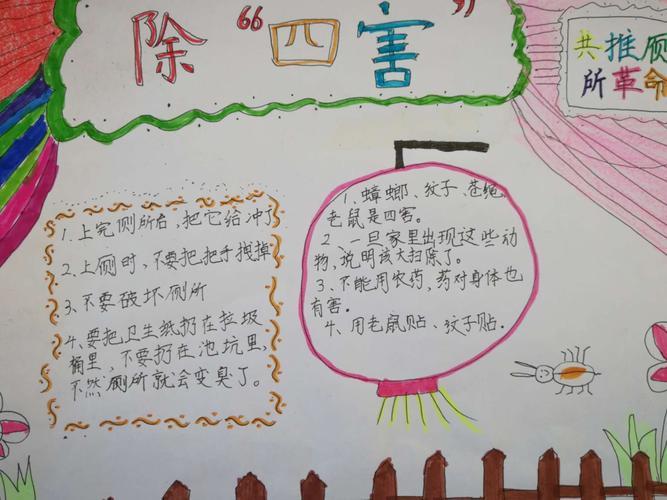 除“四害”
共推厕
所革命
1.上完侧所后,把它给冲了
2.上厕时,不要把把手拽掉
3.不要破坏厕所
4.要把卫生纸扔在垃圾
桶里,不要扔在池坑里,
不然厕所就会变臭了。
1、蟑螂、纹子、苍绳
老鼠是四害。
2、一旦家里出现这些动
物,说明该大扫除了。
3、不能用农药,药对身体也
有害。
4、用老鼠贴、纹子贴。